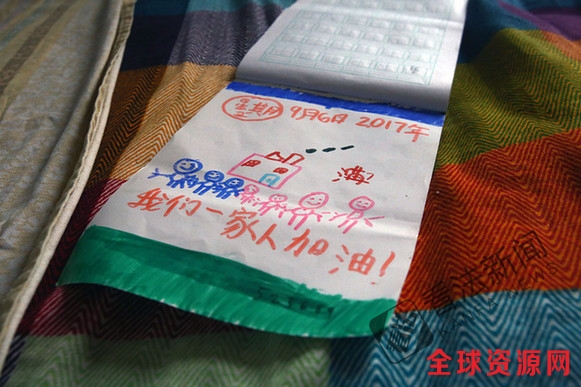 星期三 9月6日 2017年
我们一家人加油!
善达新闻
全球资源网